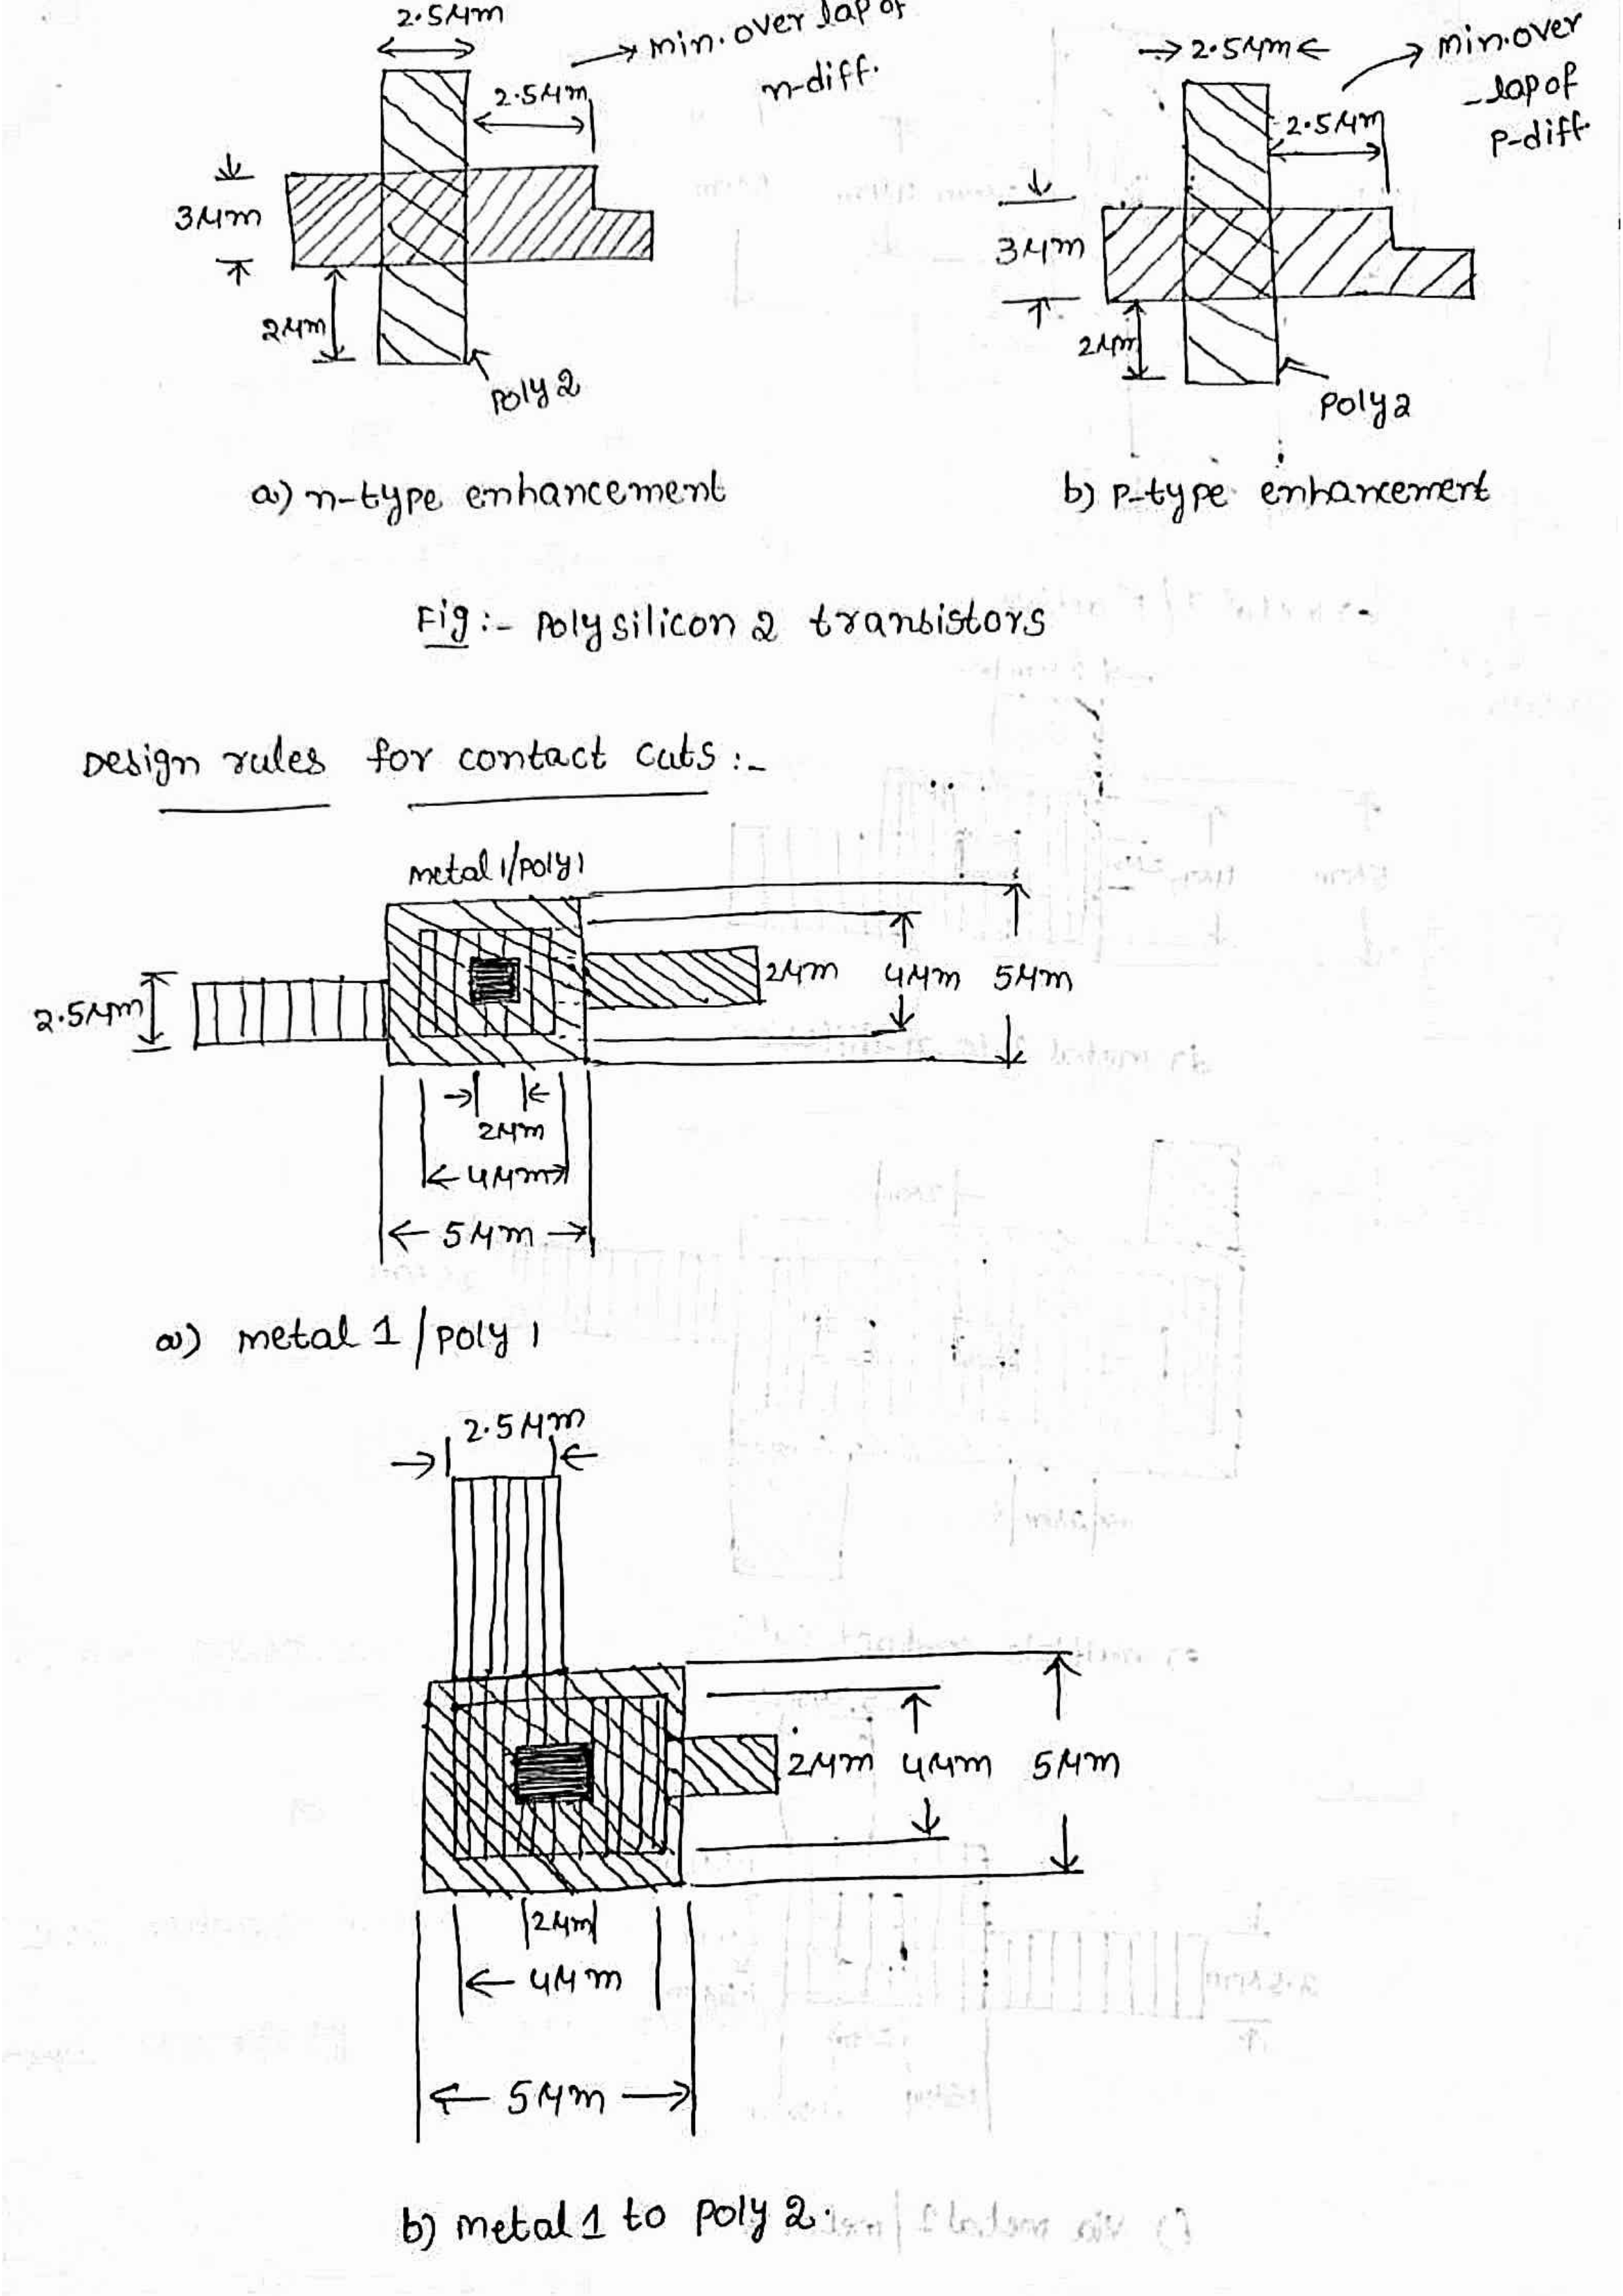 2.5μm
→ min. over lap of
n-diff.
2.5μm
3μm
2μm
poly 2
a) n-type enhancement
→ 2.5μm ←
→ min.over
-lap of
p-diff.
2.5μm
3μm
2μm
poly 2
b) p-type enhancement
Fig:- Polysilicon 2 tranbistors
Design rules for contact cuts :-
metal 1/poly 1
2.5μm
2μm 4μm 5μm
2μm
4μm
5μm
a) metal 1 / poly 1
2.5μm
2μm 4μm 5μm
2μm
4μm
5μm
b) metal 1 to poly 2.